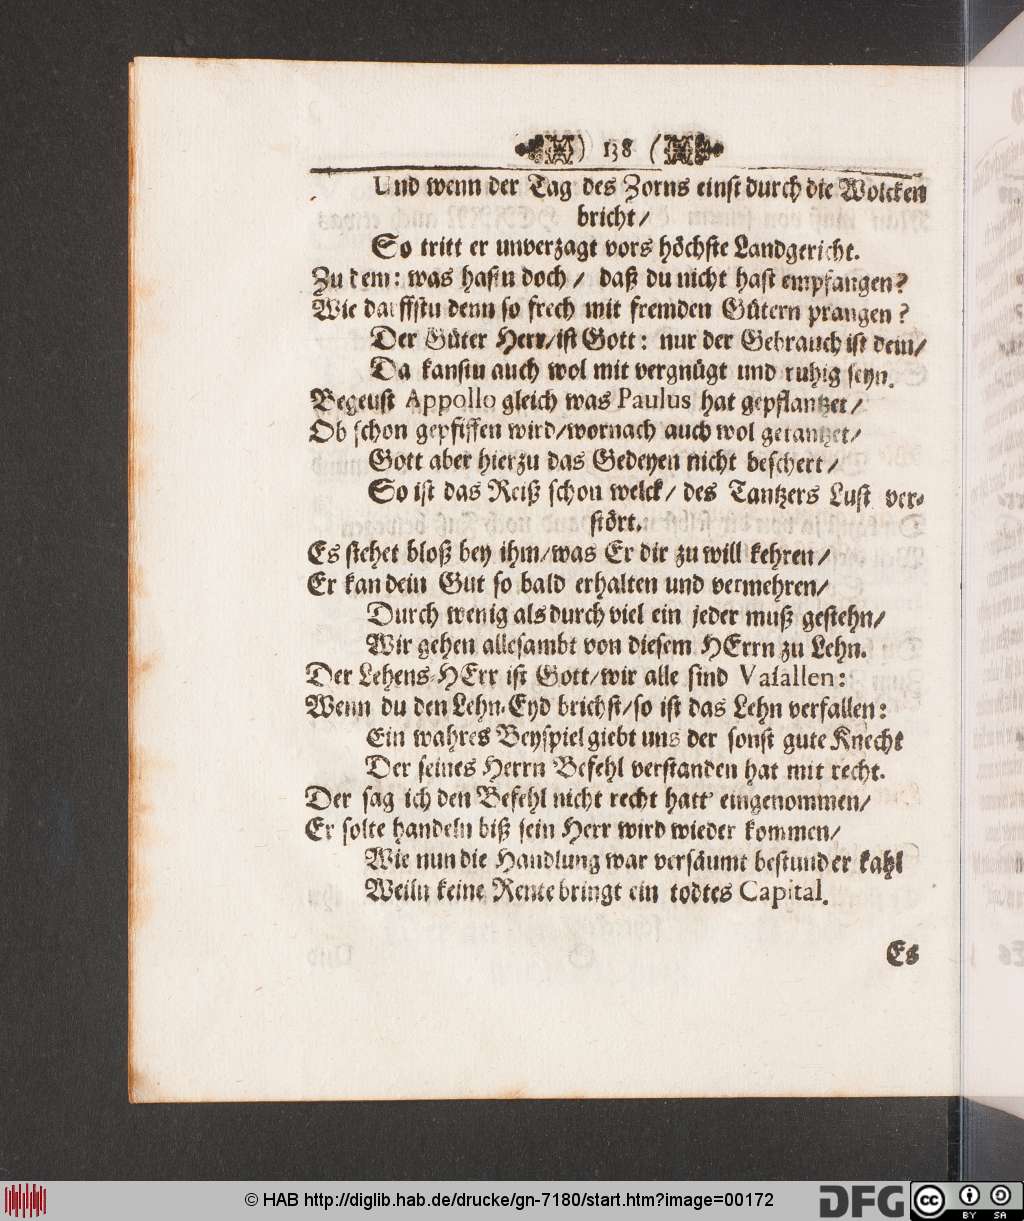 ) 138 (
Und wenn der Tag des Zorns einst durch die Wolcken
bricht/
So tritt er unverzagt vors höchste Landgericht.
Zu dem: was hastu doch/ daß du nicht hast empfangen?
Wie darffstu denn so frech mit fremden Gütern prangen?
Der Güter Herr/ist Gott: nur der Gebrauch ist dein/
Da kanstu auch wol mit vergnügt und ruhig seyn.
Begeust Appollo gleich was Paulus hat gepflantzet/
Ob schon gepfiffen wird/wornach auch wol getantzet/
Gott aber hierzu das Gedeyen nicht beschert/
So ist das Reiß schon welck/ des Tantzers Lust ver-
stört.
Es stehet bloß bey ihm/was Er dir zu will kehren/
Er kan dein Gut so bald erhalten und vermehren/
Durch wenig als durch viel ein jeder muß gestehn/
Wir gehen allesambt von diesem HErrn zu Lehn.
Der Lehens-HErr ist Gott/wir alle sind Vasallen:
Wenn du den Lehn-Eyd brichst/so ist das Lehn verfallen:
Ein wahres Beyspiel giebt uns der sonst gute Knecht
Der seines Herrn Befehl verstanden hat mit recht.
Der sag ich den Befehl nicht recht hatt' eingenommen/
Er solte handeln biß sein Herr wird wieder kommen/
Wie nun die Handlung war versäumt bestund er kahl
Weiln keine Rente bringt ein todtes Capital.
Es
© HAB http://diglib.hab.de/drucke/gn-7180/start.htm?image=00172
DFG
cc BY SA